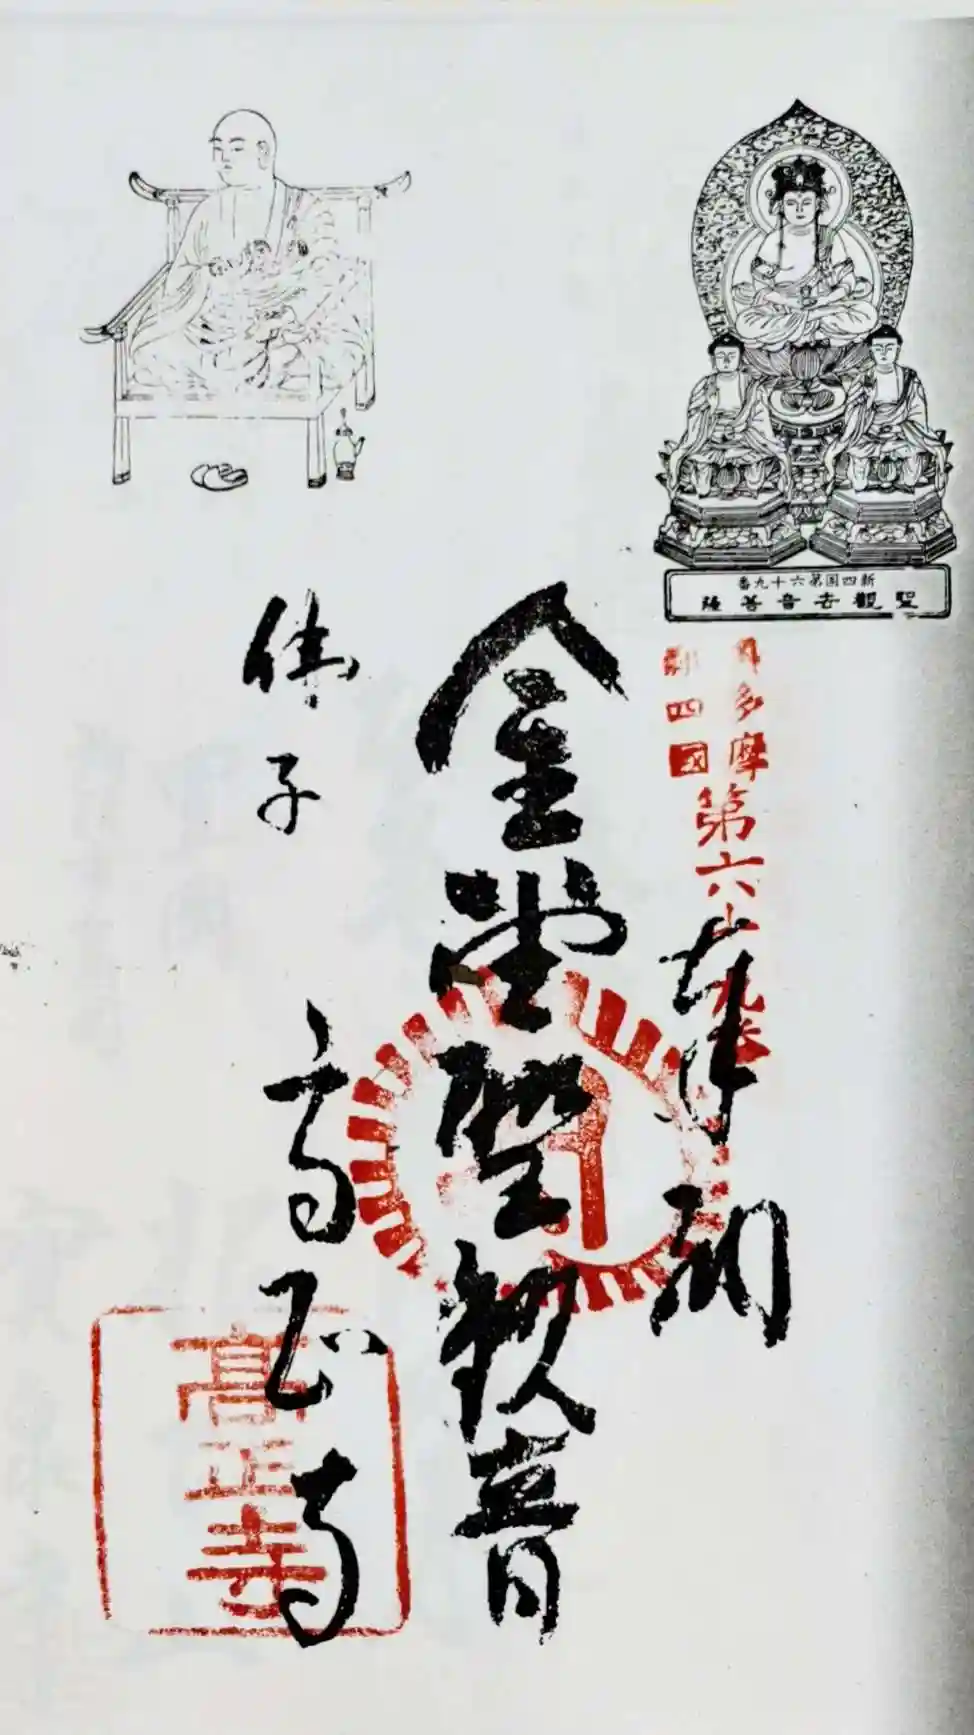 新四国第六十九番
聖觀世音菩薩
奥多摩
新四國
第六十九番
奉納
金堂聖観音
佛子 高正寺
高正寺